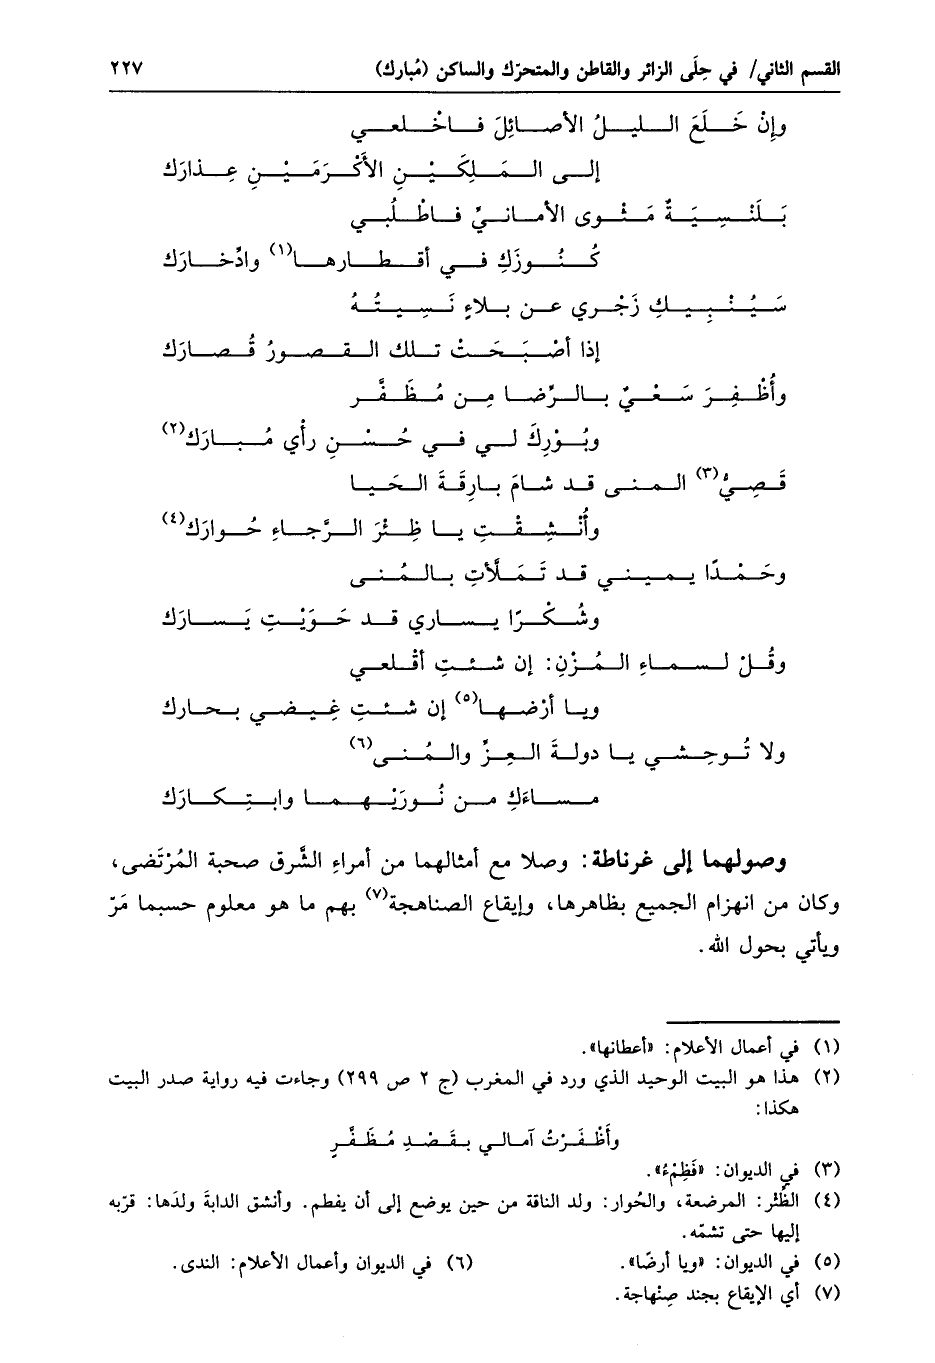 القسم الثاني/ في حِلَى الزائر والقاطن والمتحرّك والساكن (مُبارك) ٢٢٧
وإنْ خَلَعَ الليلُ الأصائِلَ فاخْلعي
إلى المَلِكَيْنِ الأكْرَمَيْنِ عِذارَك
بَلَنْسِيَةٌ مَثْوى الأمانيِّ فاطْلُبي
كُنُوزَكِ في أقطارها(١) وادّخارَك
سَيُنْبِيكِ زَجْري عن بلاءٍ نَسِيتُهُ
إذا أصْبَحَتْ تلك القصورُ قُصارَك
وأُظْفِرَ سَعْيٌ بالرِّضا مِن مُظَفَّر
وبُوْرِكَ لي في حُسْنِ رأي مُبارَك(٢)
قَصِيُّ(٣) المنى قد شامَ بارِقَةَ الحَيا
وأُنْشِقْتِ يا ظِئْرَ الرَّجاءِ حُوارَك(٤)
وحَمْدًا يميني قد تَمَلّأتِ بالمُنى
وشُكْرًا يساري قد حَوَيْتِ يَسارَك
وقُلْ لسماءِ المُزْنِ: إن شئتِ أقْلعي
ويا أرْضها(٥) إن شئتِ غِيضي بحارك
ولا تُوحِشي يا دولةَ العِزِّ والمُنى(٦)
مساءَكِ من نُورَيْهما وابتِكارَك
وصولهما إلى غرناطة: وصلا مع أمثالهما من أمراءِ الشَّرق صحبة المُرْتَضى،
وكان من انهزام الجميع بظاهرها، وإيقاع الصناهجة(٧) بهم ما هو معلوم حسبما مَرّ
ويأتي بحول الله.
(١) في أعمال الأعلام: «أعطانها».
(٢) هذا هو البيت الوحيد الذي ورد في المغرب (ج ٢ ص ٢٩٩) وجاءت فيه رواية صدر البيت
هكذا:
وأظْفَرْتُ آمالي بقَصْدِ مُظَفَّرٍ
(٣) في الديوان: «فَظِمْءُ».
(٤) الظُئر: المرضعة، والحُوار: ولد الناقة من حين يوضع إلى أن يفطم. وأنشق الدابةَ ولدَها: قرّبه
إليها حتى تشمّه.
(٥) في الديوان: «ويا أرضًا». (٦) في الديوان وأعمال الأعلام: الندى.
(٧) أي الإيقاع بجند صِنْهاجة.